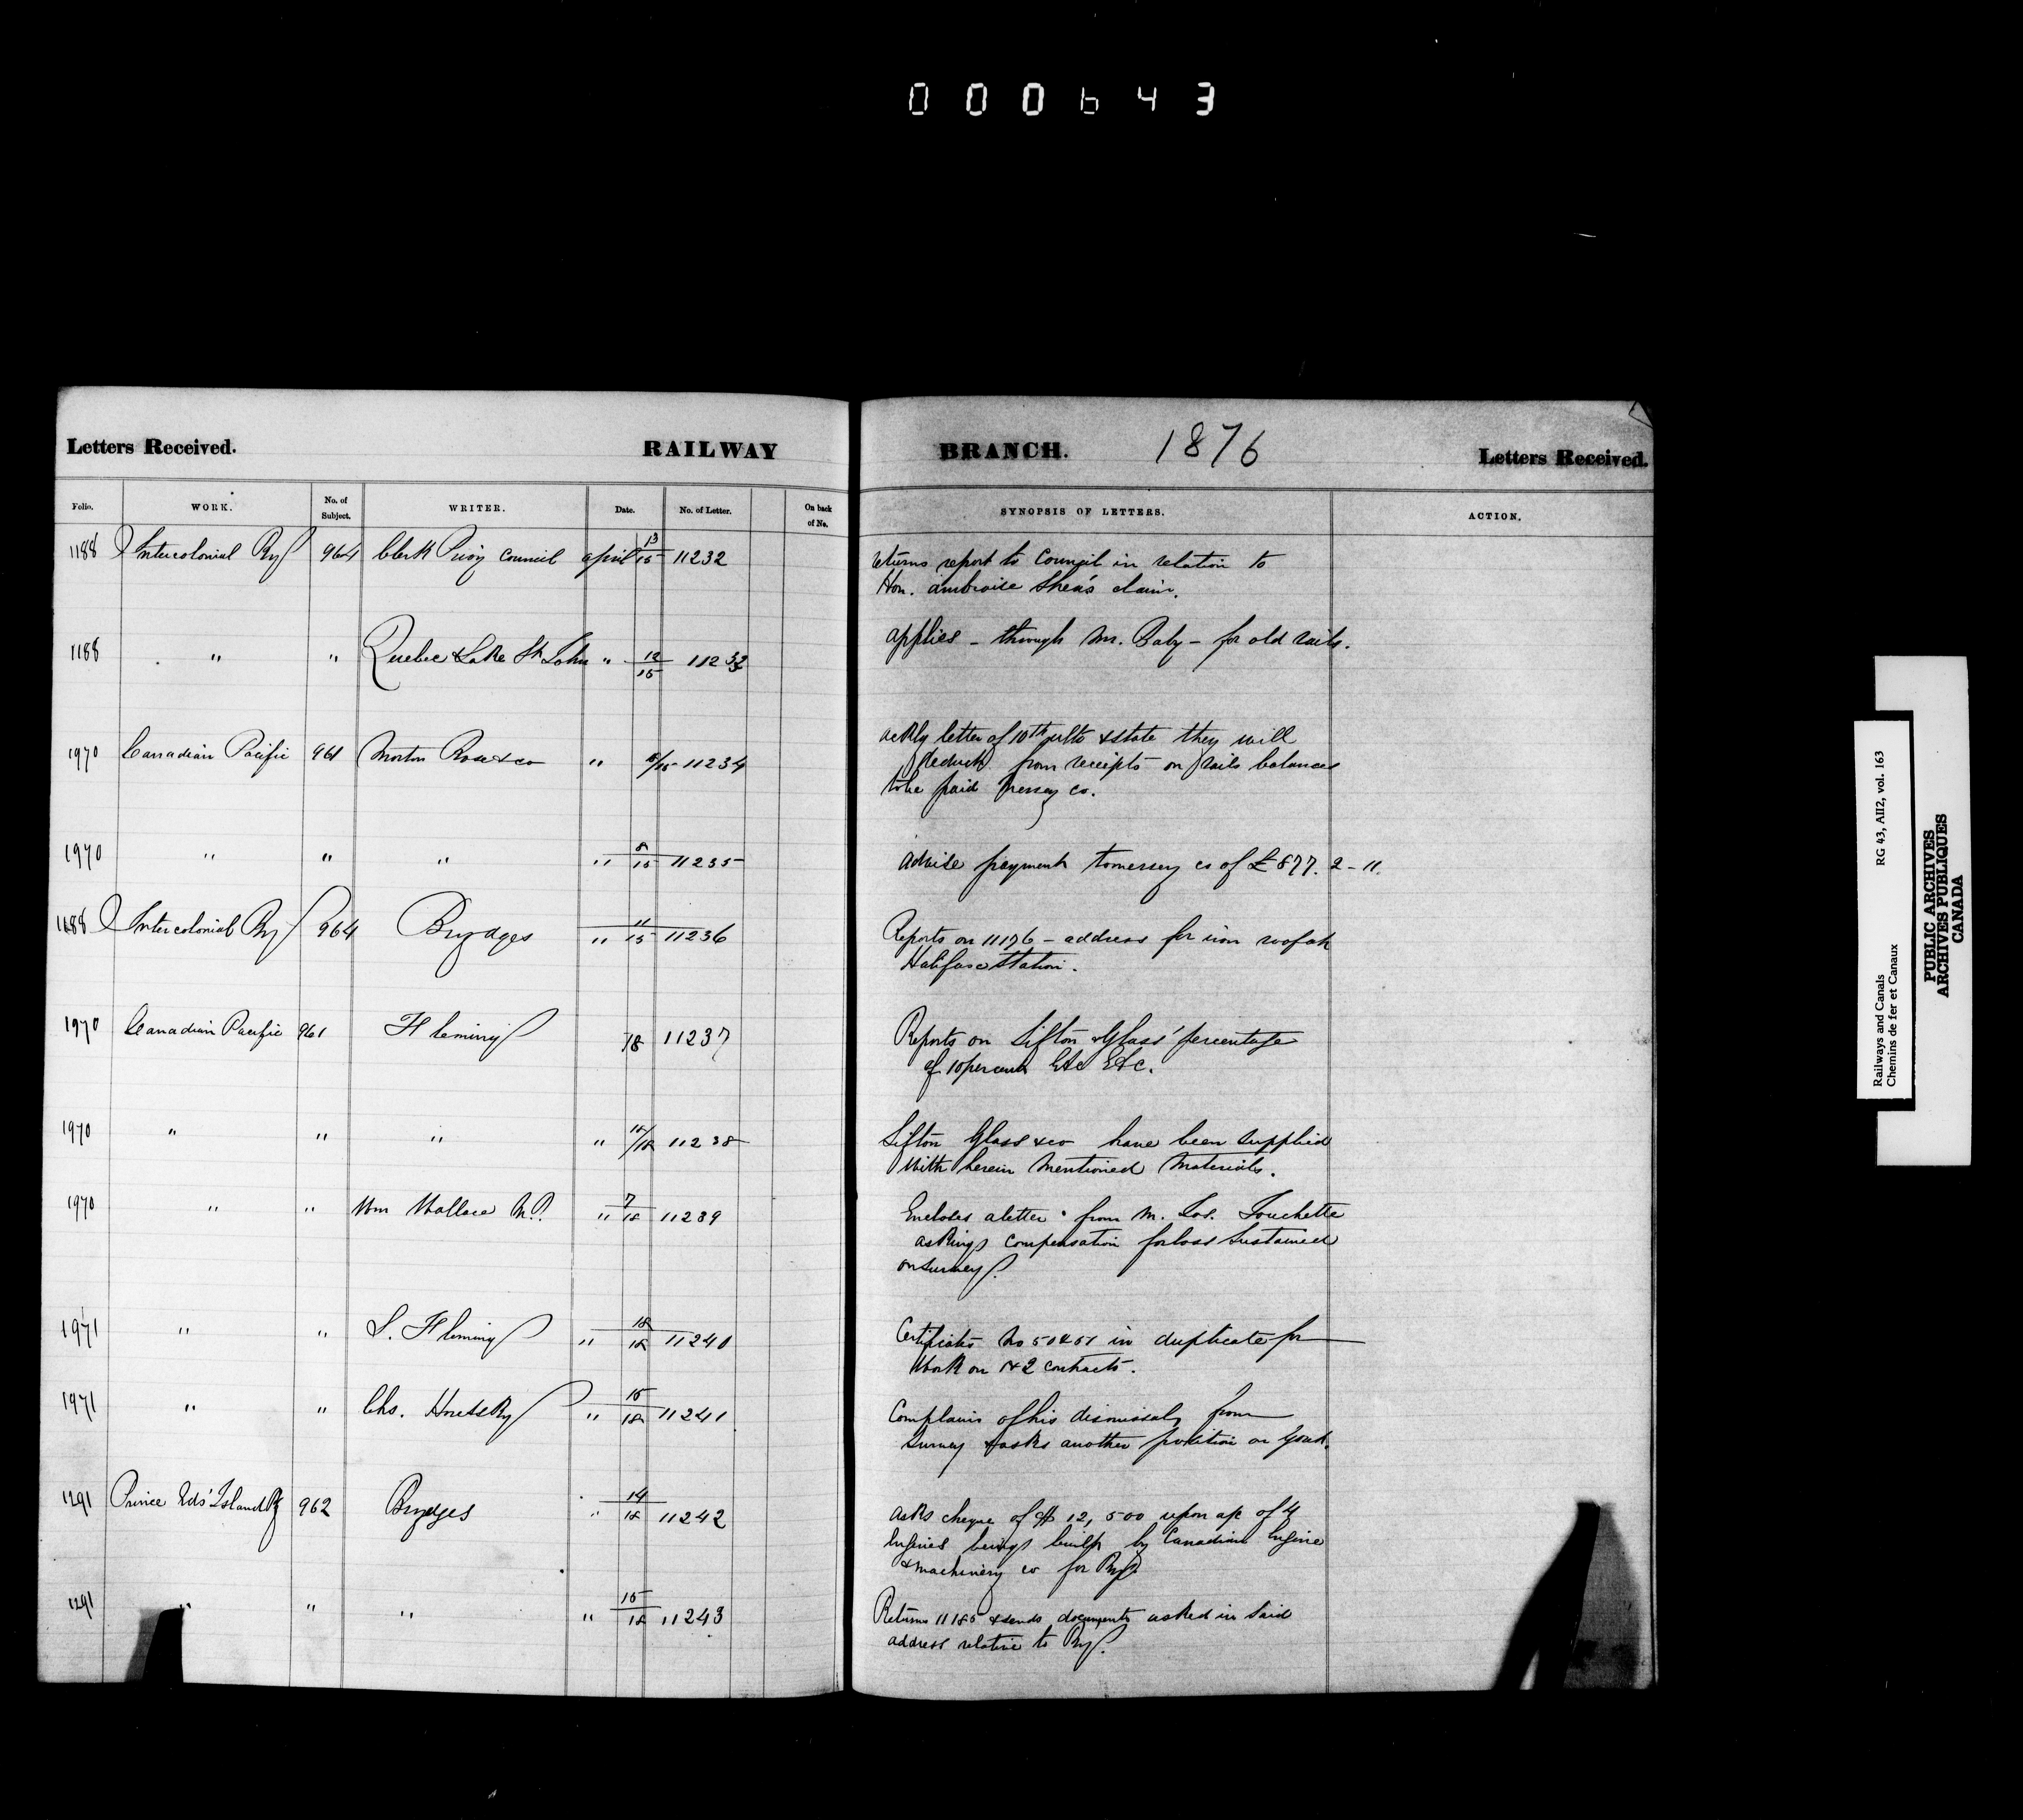 000643
Letters Received. RAILWAY BRANCH. 1876 Letters Received.
Folio. WORK. No. of Subject. WRITER. Date. No. of Letter. On back of No. SYNOPSIS OF LETTERS. ACTION.
1188 Intercolonial Ry 964 Clerk Privy Council april 13/15 11232 returns report to Council in relation to
Hon. ambroise Shea's claim.
1188 " " Quebec & Lake St John " 12/15 11233 applies - through Mr. Baby - for old rails.
1970 Canadian Pacific 961 Morton Rose & co " /15 11234 ackly letter of 10th ulto & state they will
deduct from receipts on rails balances
to be paid Mersey co.
1970 " " " " 8/15 11235 advise payment to mersey co of £877. 2 - 11.
1188 Intercolonial Ry 964 Brydges " 11/15 11236 Reports on 11176 - address for iron roof at
Halifax Station.
1970 Canadian Pacific 961 Fleming /18 11237 Reports on Sifton & Glass' percentage
of 10 per cent Etc Etc.
1970 " " " " 15/18 11238 Sifton Glass & co have been supplied
with herein mentioned materials.
1970 " " Wm Wallace M.P. " 7/18 11239 Encloses a letter from M. Jos. Touchette
asking compensation for loss sustained
on survey.
1971 " " S. Fleming " 18/18 11240 Certificates No 50 & 51 in duplicate for
Work on 1 & 2 contracts.
1971 " " Chs. " 15/18 11241 Complains of his dismissal from
Survey & asks another position on Govt.
1291 Prince Eds' Island Ry 962 Brydges " 14/18 11242 asks cheque of $12,500 upon a/c of 4
Engines being built by Canadian Engine
& machinery co for Ry.
1291 " " " " 15/18 11243 Returns 11185 & sends documents asked in said
address relative to Ry.
Railways and Canals RG 43, AII2, vol. 163
Chemins de fer et Canaux
PUBLIC ARCHIVES
ARCHIVES PUBLIQUES
CANADA